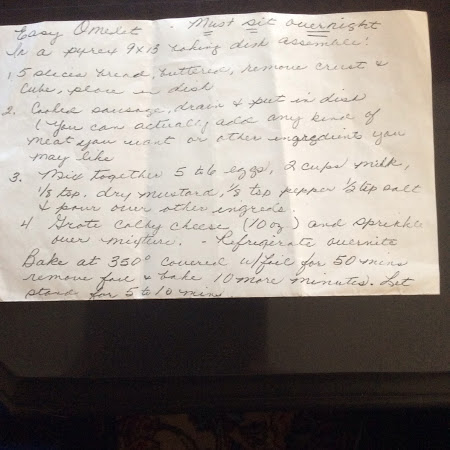 Easy Omelet - Must sit overnight
In a pyrex 9x13 baking dish assemble:
1, 5 slices bread, buttered, remove crust &
cube, place in dish
2. Cooked sausage, drain & put in dish
(You can actually add any kind of
meat you want or other ingredient you
may like
3. Mix together 5 to 6 eggs, 2 cups milk,
1/3 tsp. dry mustard, 1/8 tsp pepper 1/2 tsp salt
& pour over other ingreds.
4 Grate colby cheese (10 oz) and sprinkle
over mixture. - Refrigerate overnite
Bake at 350° covered w/foil for 50 mins
remove foil & bake 10 more minutes. Let
stand for 5 to 10 mins